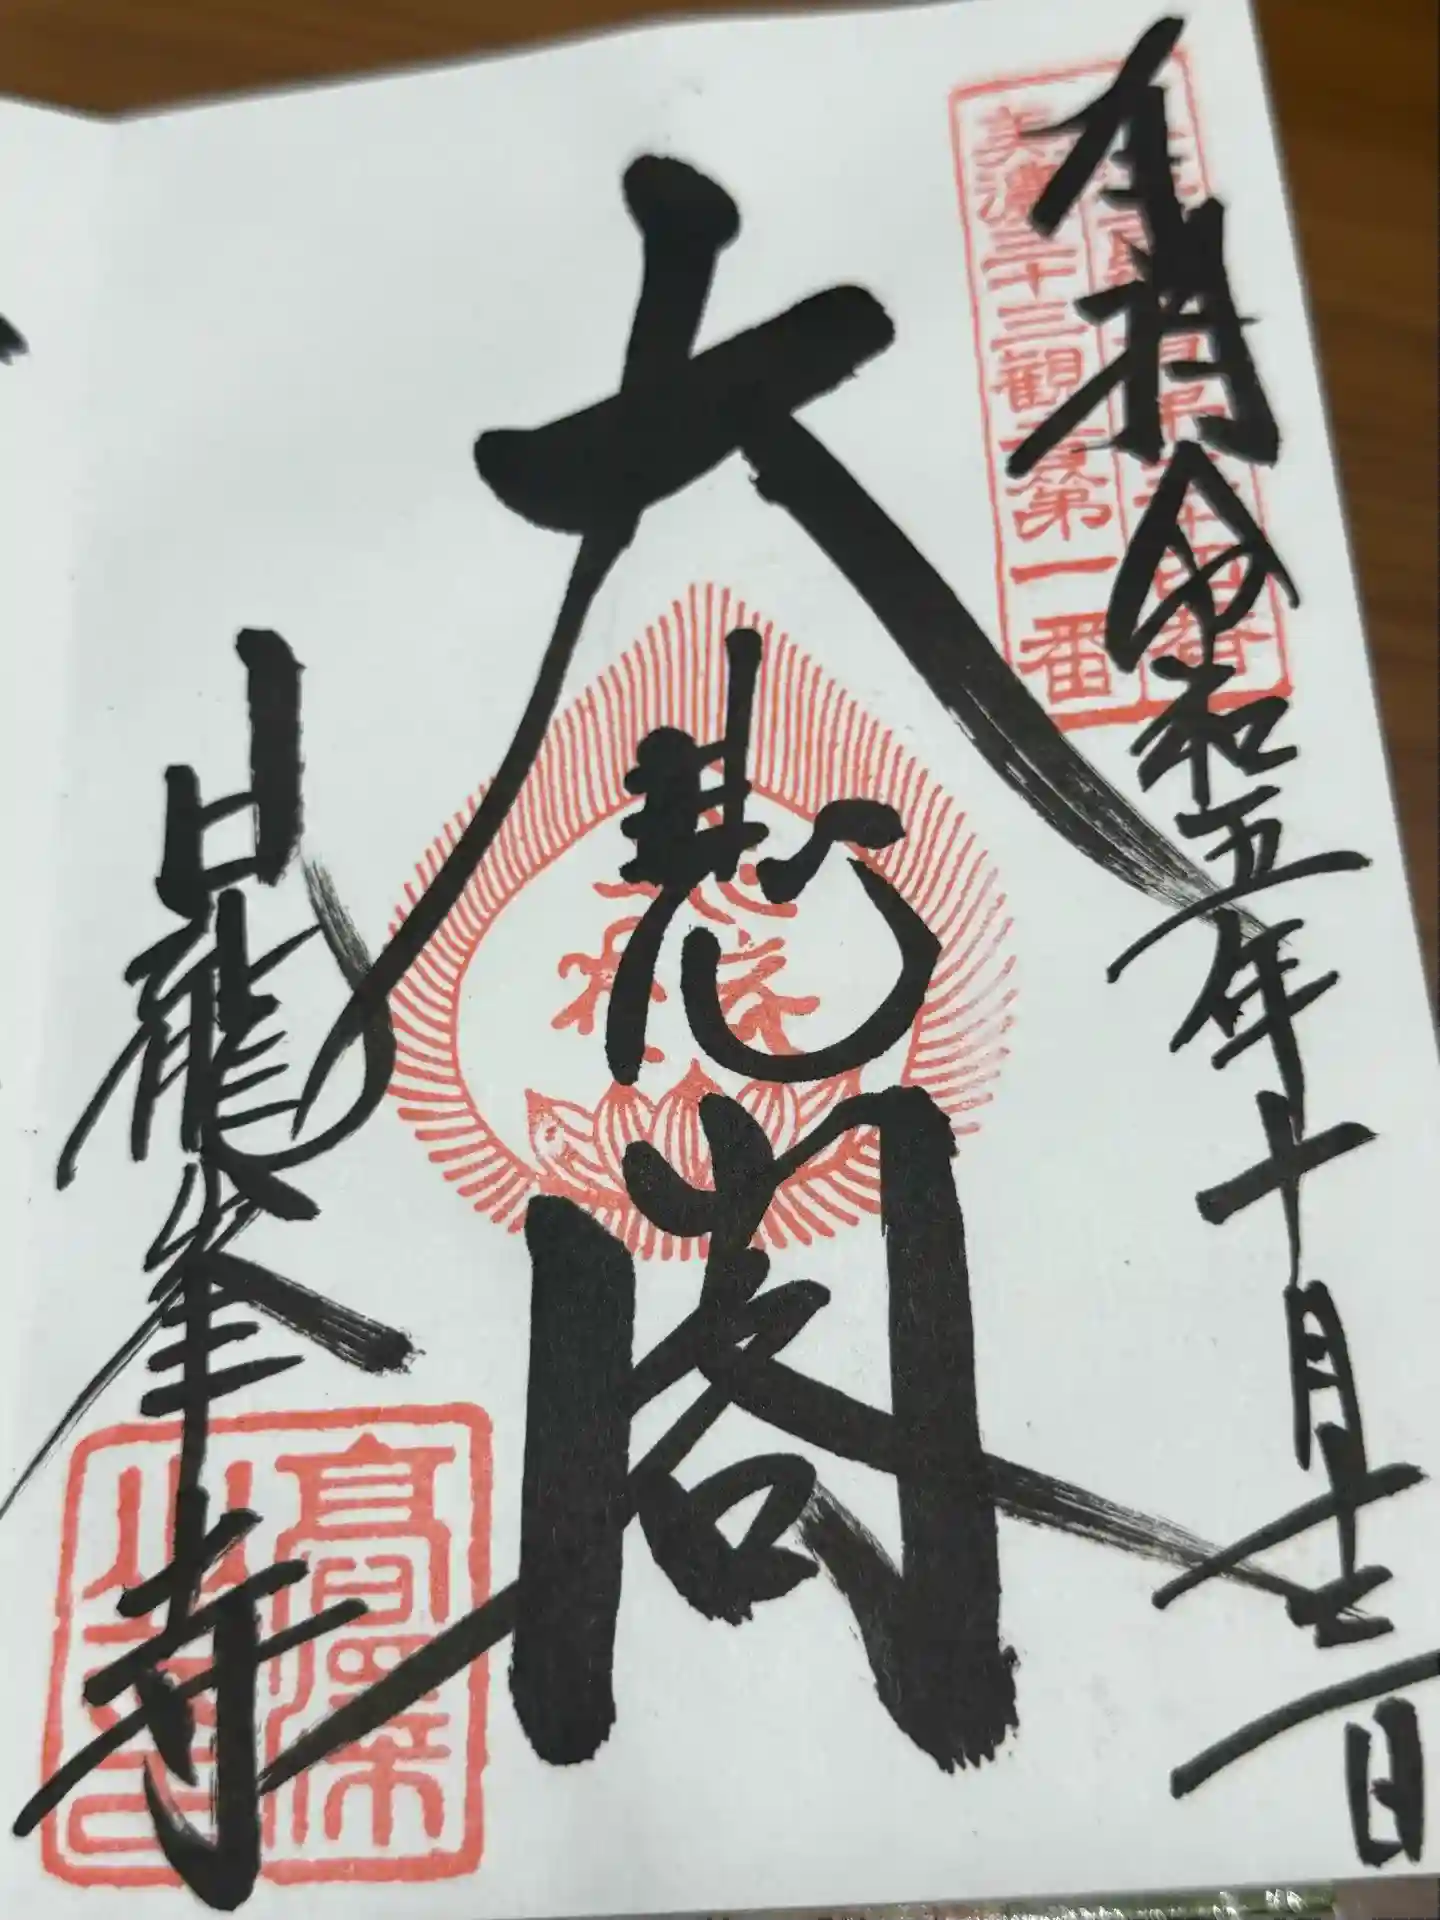 奉拝 令和五年十月十二日
美濃三十三観音第一番
大悲閣
日龍峯寺
高澤